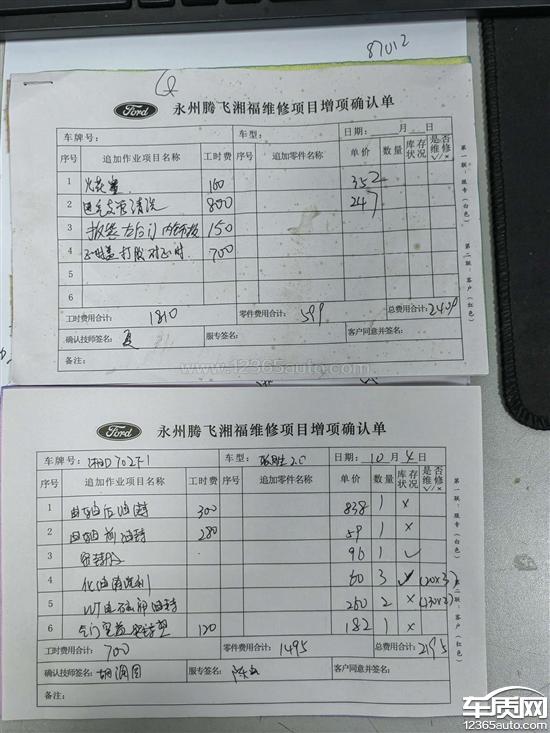 87012
Ford 永州腾飞湘福维修项目增项确认单
车牌号: 车型: 日期: 月 日
序号 追加作业项目名称 工时费 序号 追加零件名称 单价 数量 库存状况 是否维修 √/×
1 火花塞 160 352
2 进气支管清洗 800 247
3 拆装左后门内饰板 150
4 正时盖打胶对正时 700
5
6
工时费用合计: 1810 零件费用合计: 599 总费用合计: 2409
确认技师签名: 服专签名: 客户同意并签名:
备注:
第一联:服专(白色) 第二联:客户(红色)
www.12365auto.com
Ford 永州腾飞湘福维修项目增项确认单
车牌号: 湘D702F1 车型: 2.0 日期: 10 月 4 日
序号 追加作业项目名称 工时费 序号 追加零件名称 单价 数量 库存状况 是否维修 √/×
1 曲轴后油封 300 838 1 ×
2 曲轴前油封 280 59 1 ×
3 密封胶 96 1 √
4 化油清洗剂 60 3 √ (20×3)
5 油封 260 2 × (130×2)
6 气门室盖 120 182 1 ×
工时费用合计: 700 零件费用合计: 1495 总费用合计: 2195
确认技师签名: 服专签名: 客户同意并签名:
备注:
第一联:服专(白色) 第二联:客户(红色)
车质网
12365auto.com